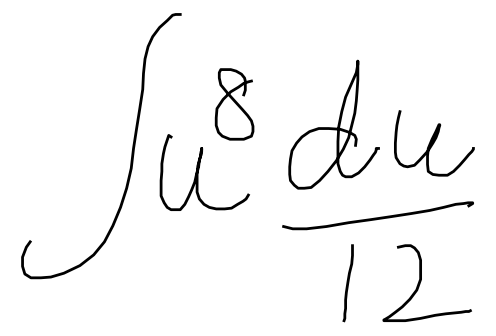 ∫ u⁸ du/12